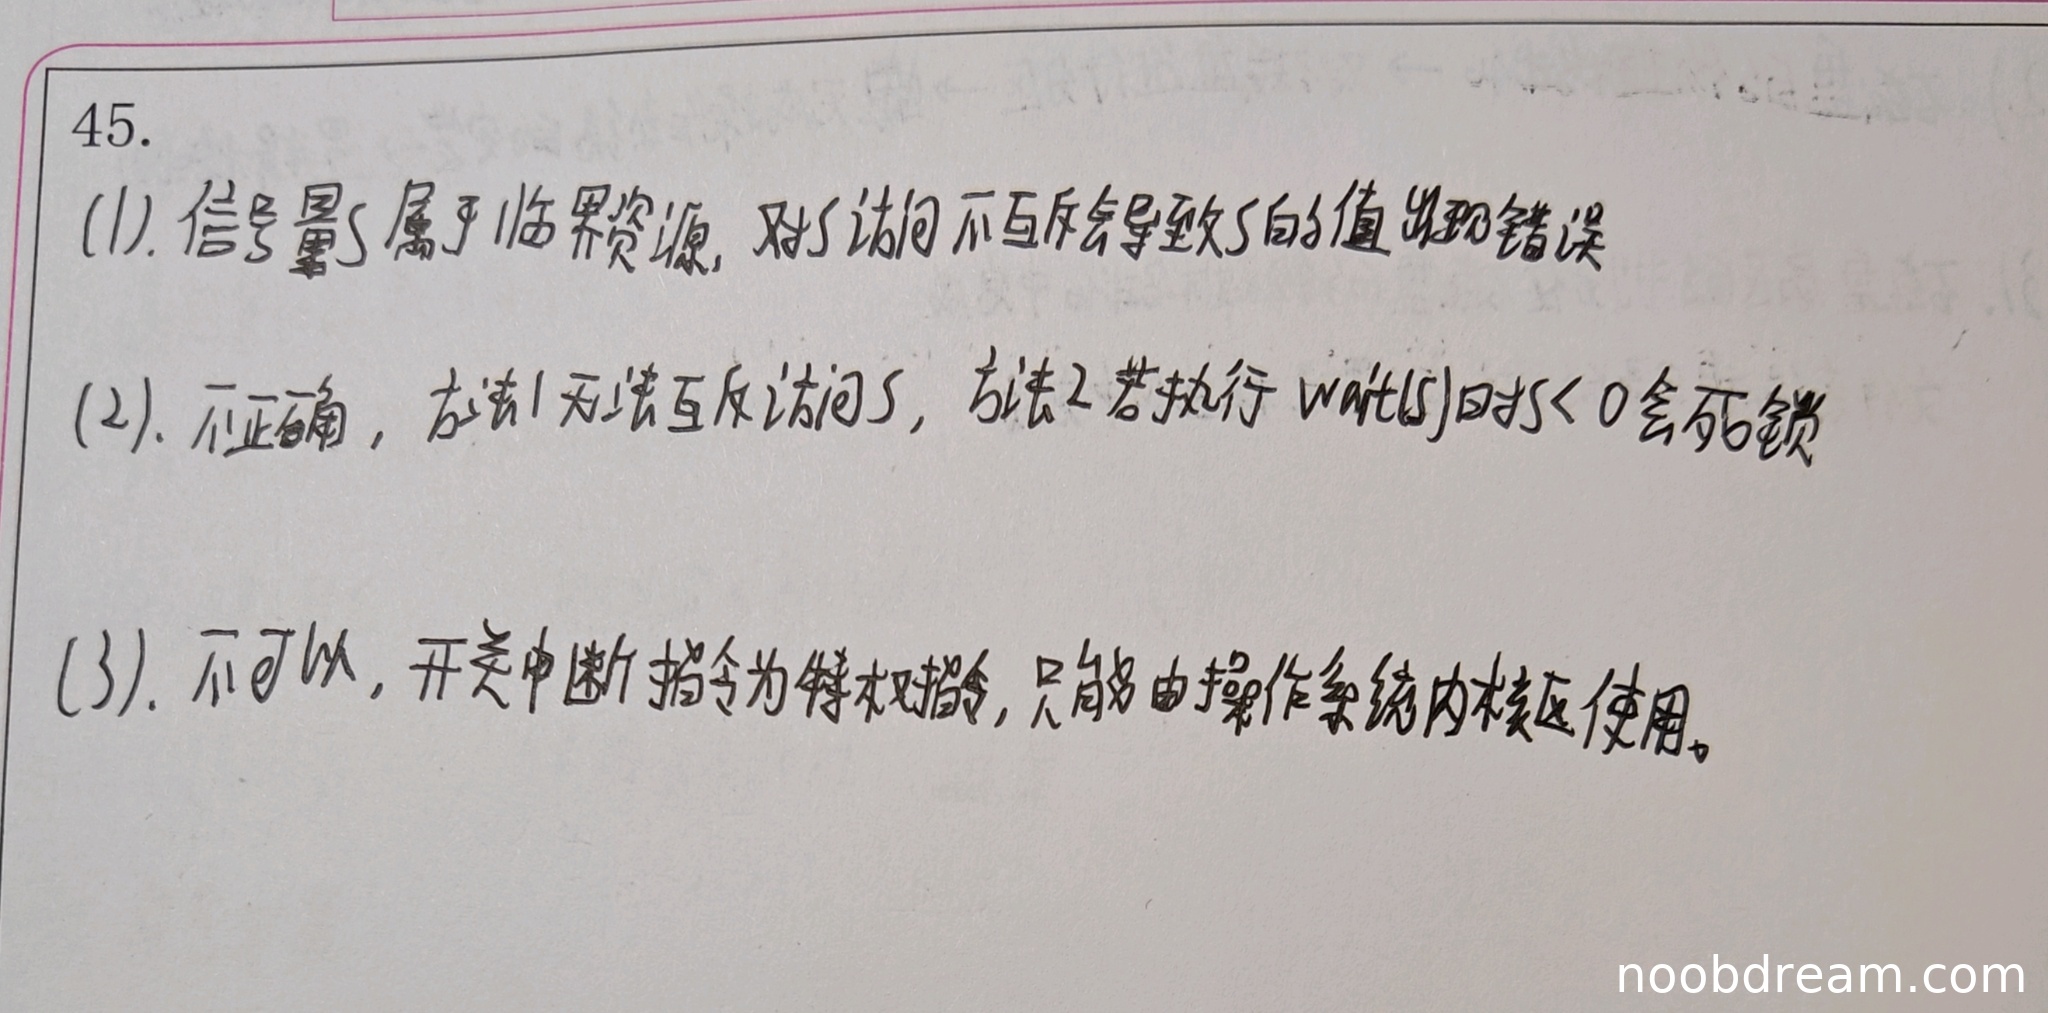 45.
(1). 信号量S属于临界资源, 对S访问不互斥会导致S的值出现错误
(2). 不正确, 方法1无法互斥访问S, 方法2若执行 wait(S)时S<0会死锁
(3). 不可以, 开关中断指令为特权指令, 只能由操作系统内核区使用。
noobdream.com